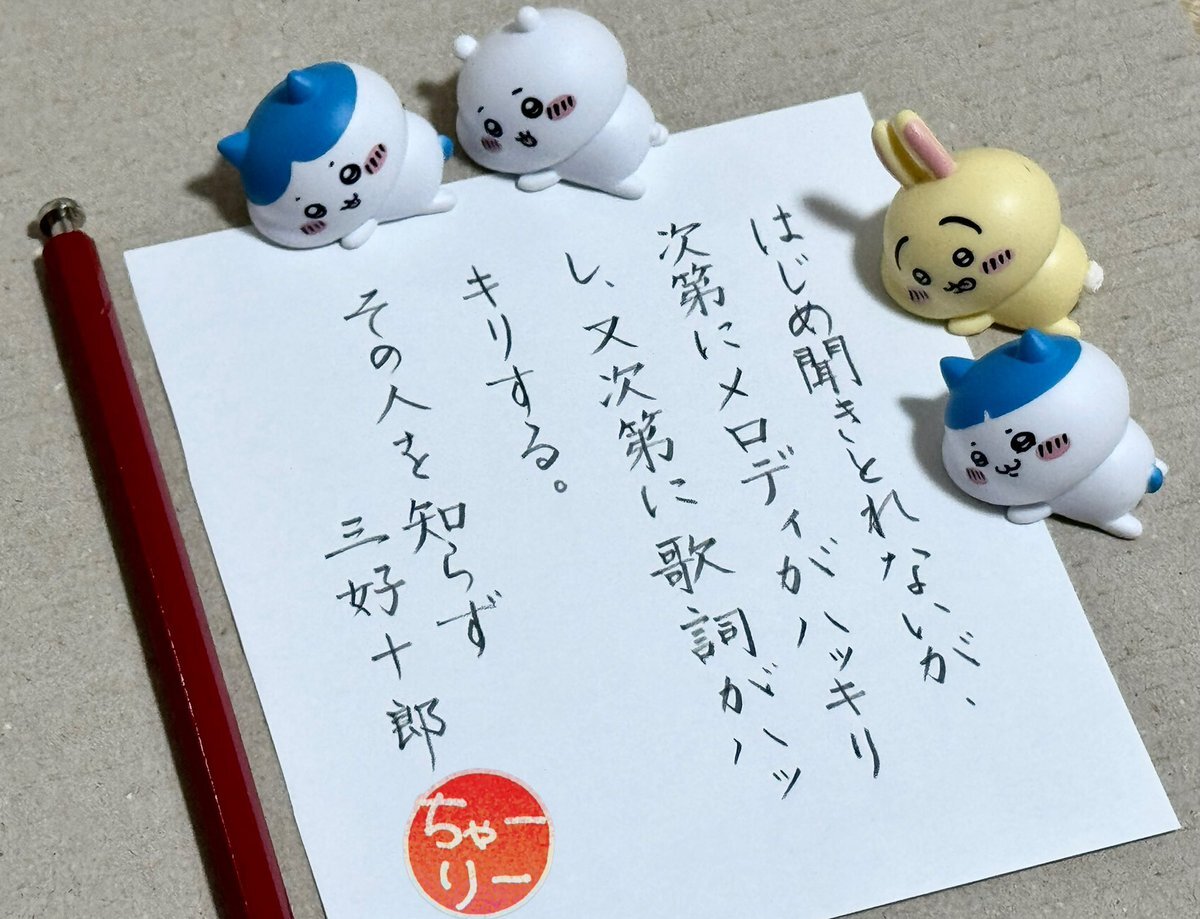 はじめ聞きとれないが、
次第にメロディがハッキリ
し、又次第に歌詞がハッ
キリする。
その人を知らず
三好十郎
ちゃー
りー